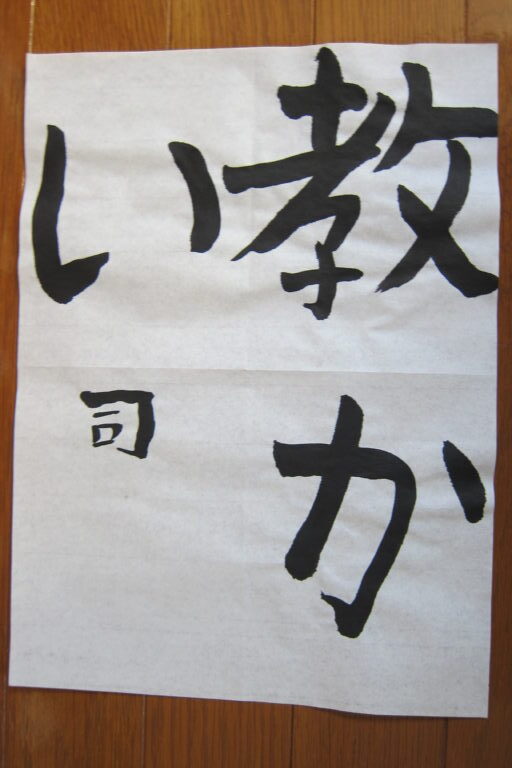 教か
い
司